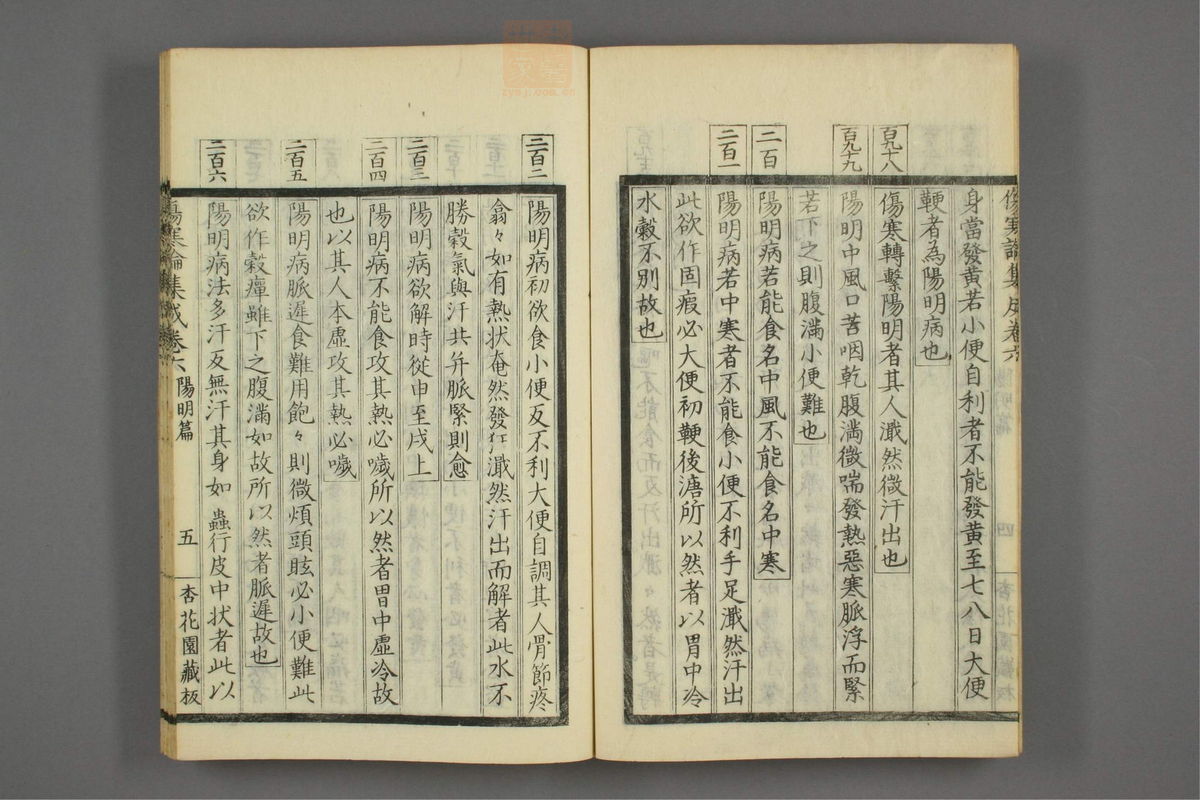 身當發黃若小便自利者不能發黃至七八日大便
鞕者為陽明病也
百九十八
傷寒轉繫陽明者其人濈然微汗出也
百九十九
陽明中風口苦咽乾腹滿微喘發熱惡寒脈浮而緊
若下之則腹滿小便難也
二百
陽明病若能食名中風不能食名中寒
二百一
陽明病若中寒者不能食小便不利手足濈然汗出
此欲作固瘕必大便初鞕後溏所以然者以胃中冷
水穀不別故也
二百二
陽明病初欲食小便反不利大便自調其人骨節疼
翕々如有熱状奄然發狂濈然汗出而解者此水不
勝穀氣與汗共并脈緊則愈
二百三
陽明病欲解時從申至戌上
二百四
陽明病不能食攻其熱必噦所以然者胃中虛冷故
也以其人本虛攻其熱必噦
二百五
陽明病脈遲食難用飽々則微煩頭眩必小便難此
欲作穀癉雖下之腹滿如故所以然者脈遲故也
二百六
陽明病法多汗反無汗其身如蟲行皮中状者此以
傷寒論集成卷六 陽明篇 五 杏花園藏板